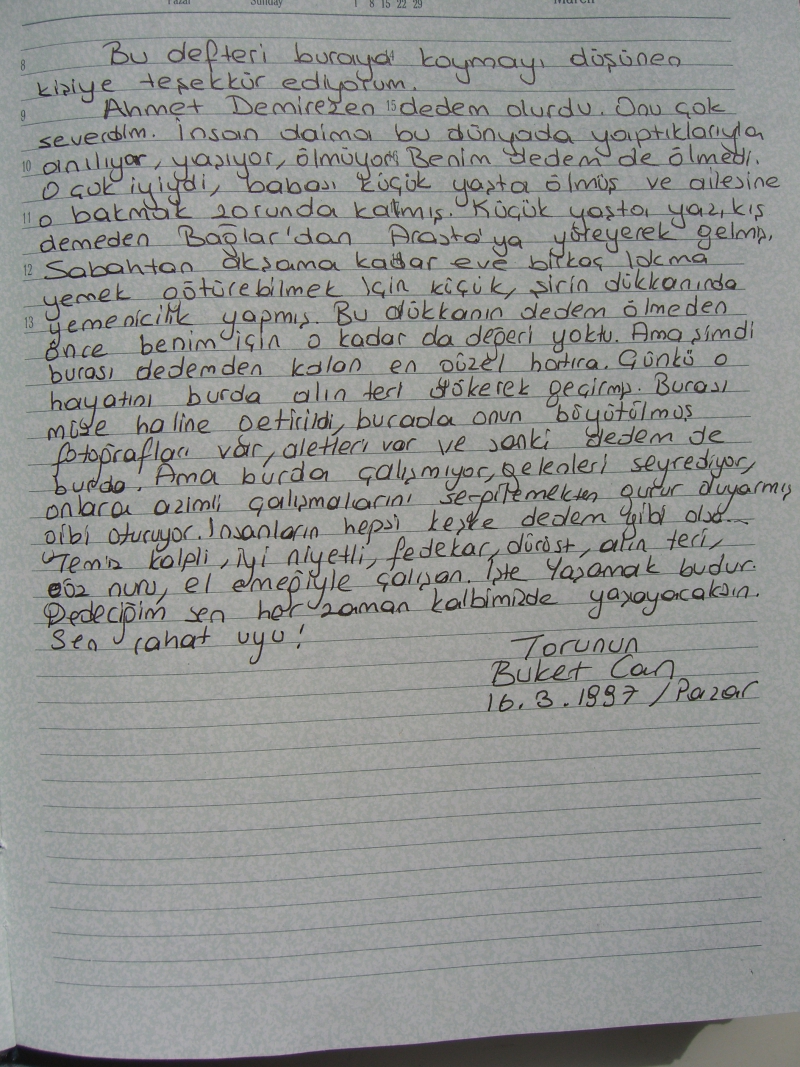 Pazar Sunday 1 8 15 22 29 March
8 Bu defteri buraya koymayı düşünen
kişiye teşekkür ediyorum.
9 Ahmet Demirezen 15 dedem olurdu. Onu çok
severdim. İnsan daima bu dünyada yaptıklarıyla
10 anılıyor, yaşıyor, ölmüyor. Benim dedem de ölmedi.
O çok iyiydi, babası küçük yaşta ölmüş ve ailesine
11 o bakmak zorunda kalmış. Küçük yaşta, yaz, kış
demeden Bağlar'dan Arasta'ya yürüyerek gelmiş,
12 Sabahtan akşama kadar eve birkaç lokma
yemek götürebilmek için küçük, şirin dükkanında
13 yemenicilik yapmış. Bu dükkanın dedem ölmeden
önce benim için o kadar da değeri yoktu. Ama şimdi
burası dedemden kalan en güzel hatıra. Çünkü o
hayatını burda alın teri dökerek geçirmiş. Burası
müze haline getirildi, burada onun büyütülmüş
fotoğrafları var, aletleri var ve sanki dedem de
burda. Ama burda çalışmıyor, gelenleri seyrediyor,
onlara azimli çalışmalarını sergilemekten gurur duyarmış
gibi oturuyor. İnsanların hepsi keşke dedem gibi olsa...
Temiz kalpli, iyi niyetli, fedekar, dürüst, alın teri,
göz nuru, el emeğiyle çalışan. İşte Yaşamak budur.
Dedeciğim sen her zaman kalbimizde yaşayacaksın.
Sen rahat uyu!
Torunun
Buket Can
16.3.1997 / Pazar